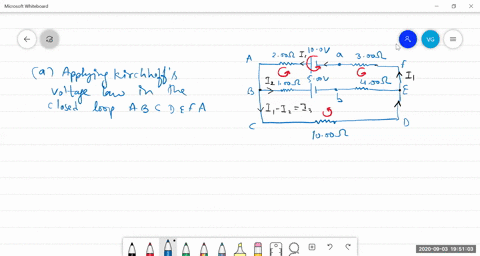 Microsoft Whiteboard
VG
(a) Applying Kirchhoff's
voltage law in the
closed loop A B C D E F A
A
2.00Ω
I1
10.0V
a
3.00Ω
F
I1
B
I2
1.00Ω
5.0V
b
4.00Ω
E
I1-I2=I3
C
10.00Ω
D
2020-09-03 19:51:03